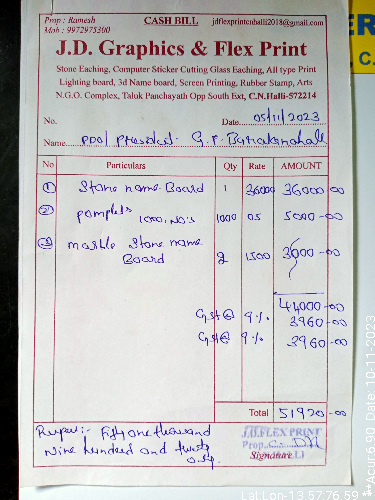 Prop : Ramesh
Mob : 9972975300
CASH BILL
jdflexprintcnhalli2018@gmail.com
J.D. Graphics & Flex Print
Stone Eaching, Computer Sticker Cutting Glass Eaching, All type Print
Lighting board, 3d Name board, Screen Printing, Rubber Stamp, Arts
N.G.O. Complex, Taluk Panchayath Opp South Ext, C.N.Halli-572214
No. Date 05/11/2023
Name G.P.
No Particulars Qty Rate AMOUNT
1 Stone name Board 1 36000 36000-00
2 pamplets 1000, No's 1000 05 5000-00
3 marble Stone name Board 2 1500 3000
44000-00
Gst@ 9% 3960-00
Gst@ 9% 3960-00
Total 51920-00
Rupees:- Fifty one thousand
Nine hundred and twenty
only.
J.D.FLEX PRINT
Prop.
Signature
C.